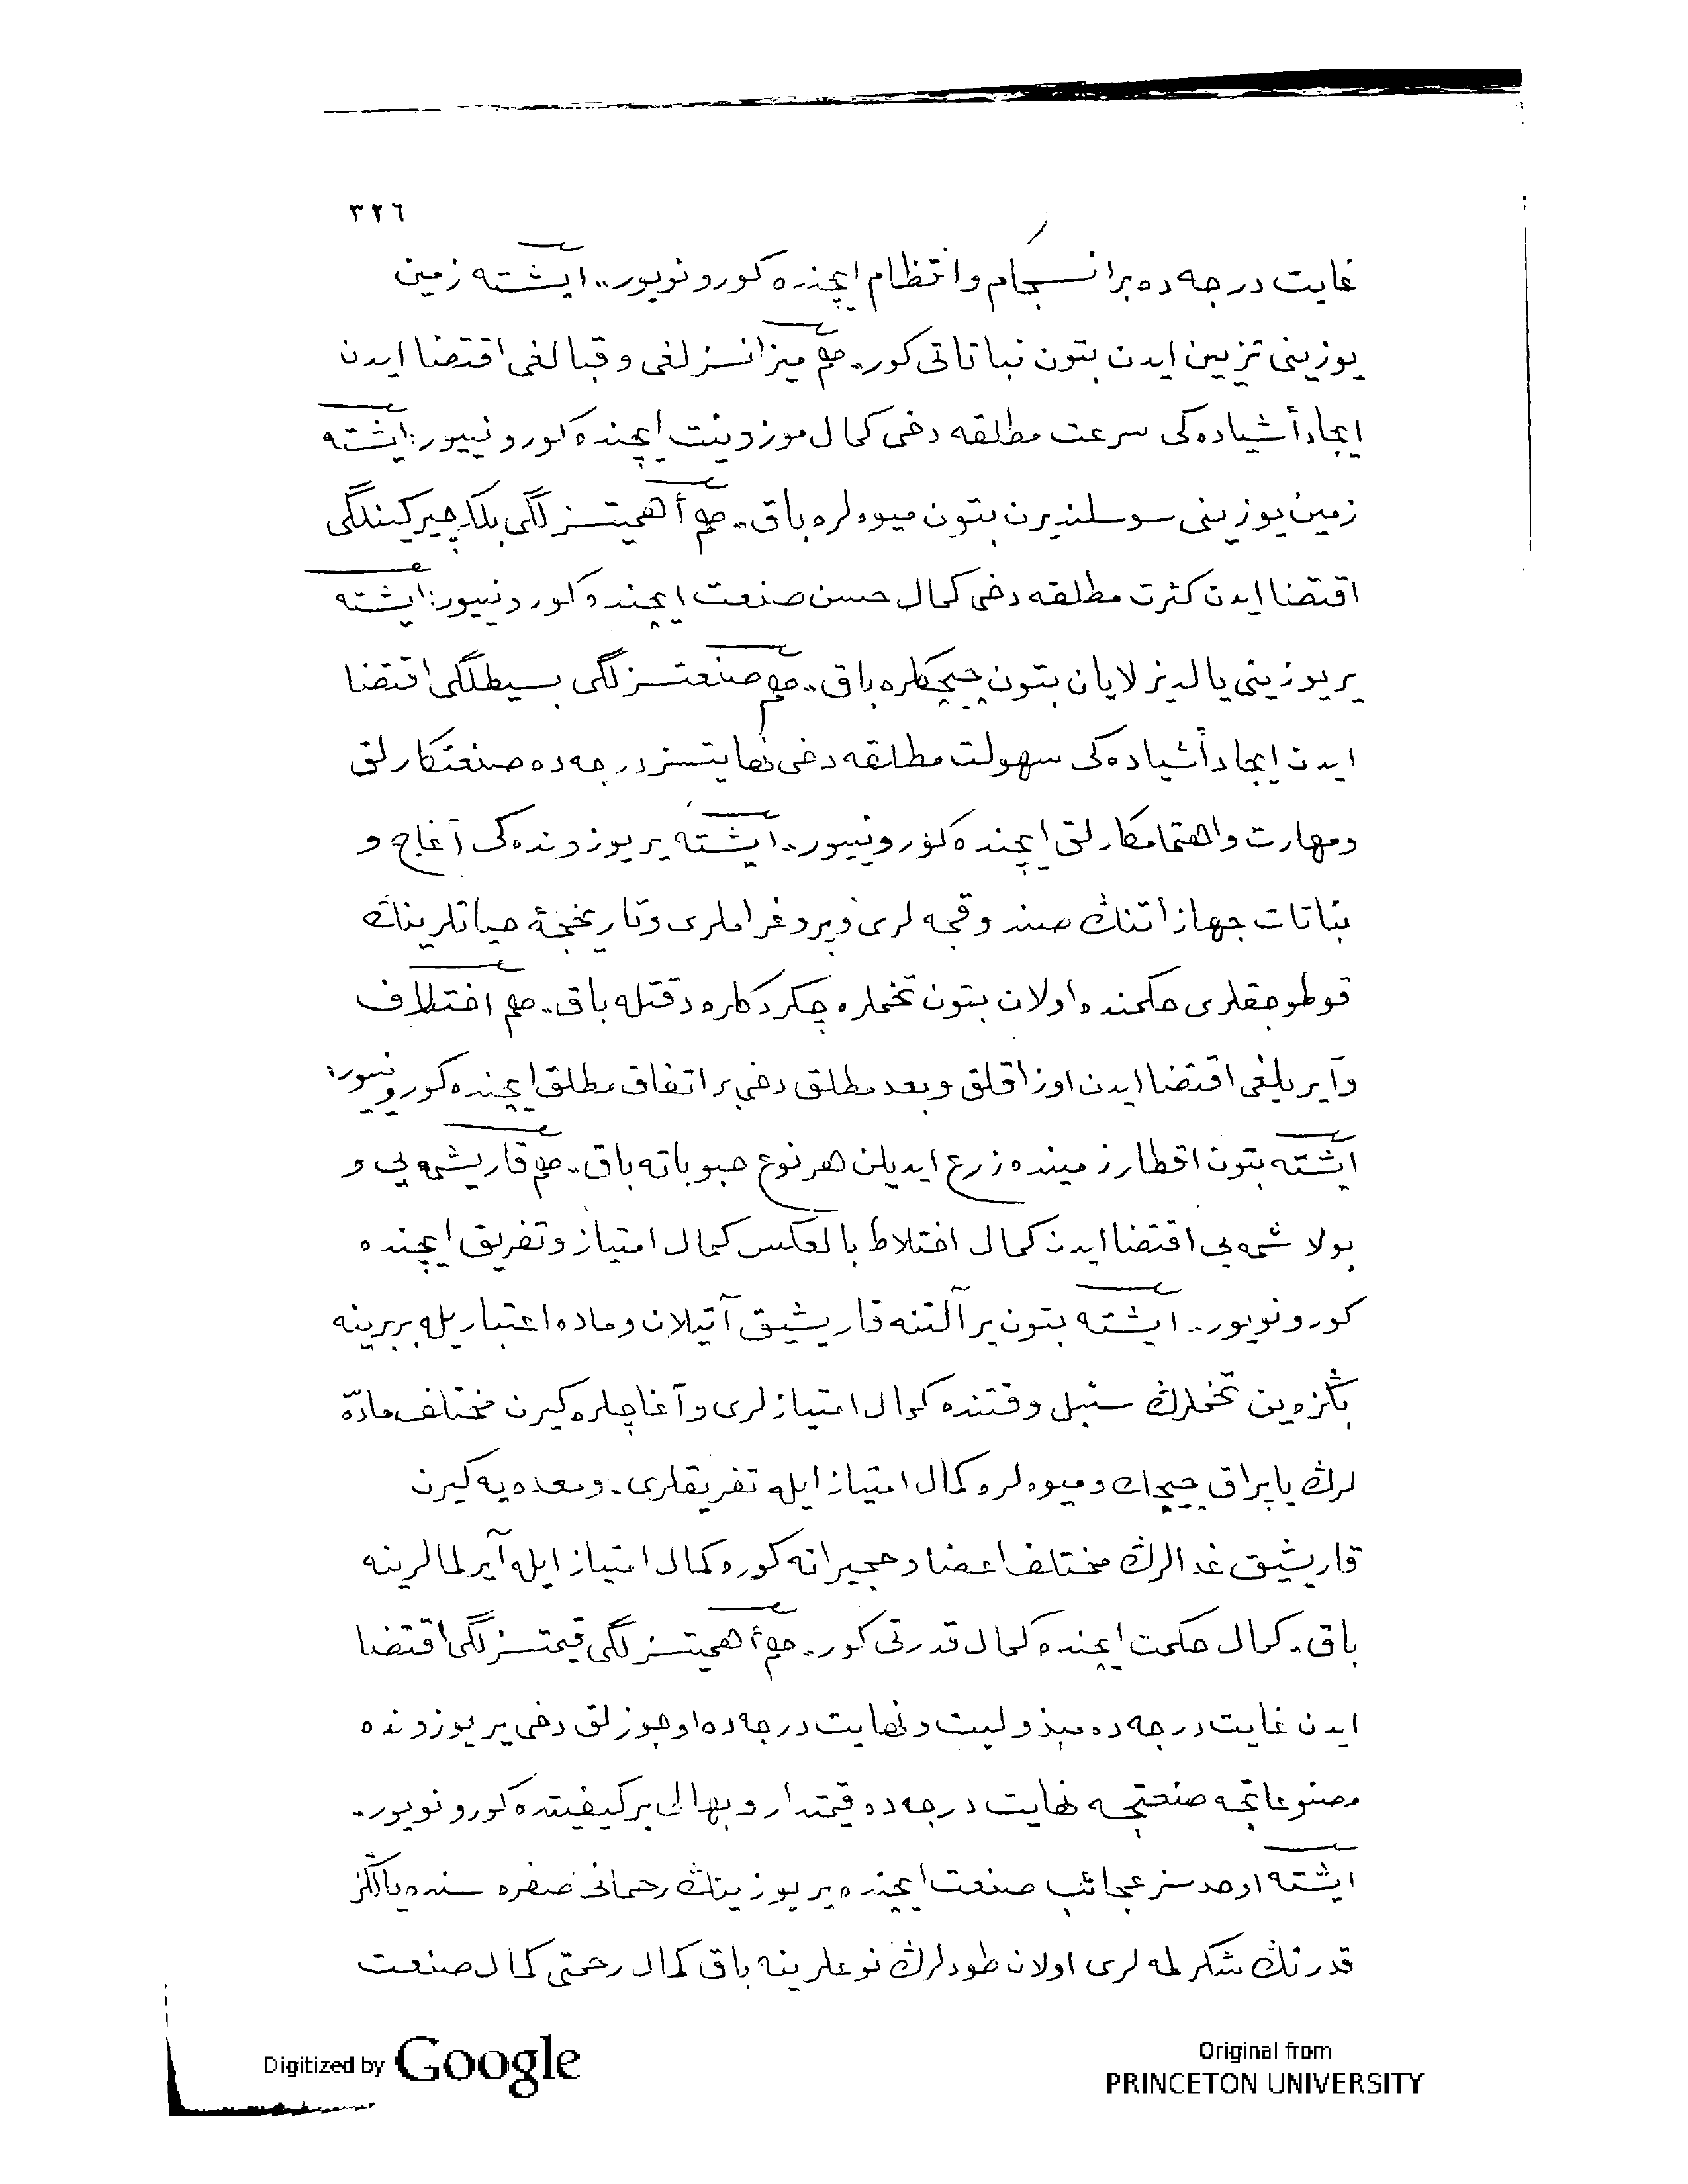 ٣٢٦
غايت درجه ده بر انسجام و انتظام ايچنده كورونويور.. ايشته زمين
يوزينى تزيين ايدن بتون نباتاتى كور. هم ميزانسزلغى و قبالغى اقتضا ايدن
ايجاد أشياده كى سرعت مطلقه دخى كمال موزونيت ايچنده كورونييور: ايشته
زمين يوزينى سوسلنديرن بتون ميوه لره باق.. هم أهميتسزلگى بلكه چيركينلگى
اقتضا ايدن كثرت مطلقه دخى كمال حسن صنعت ايچنده كورونييور: ايشته
ير يوزينى يالديزلايان بتون چيچكلره باق.. هم صنعتسزلگى بسيطلگى اقتضا
ايدن ايجاد أشياده كى سهولت مطلقه دخى نهايتسز درجه ده صنعتكارلق
ومهارت واهتمامكارلق ايچنده كورونييور.. ايشته ير يوزونده كى آغاج و
نباتات جهازاتنڭ صندوقچه لرى و پروغراملرى وتاريخچهٔ حياتلرينڭ
قوطوجقلرى حكمنده اولان بتون تخملره چكردكلره دقتله باق. هم اختلاف
وآيريلغى اقتضا ايدن اوزاقلق وبعد مطلق دخى بر اتفاق مطلق ايچنده كورونييور:
ايشته بتون اقطار زمينده زرع ايديلن هر نوع حبوباته باق. هم قاريشمه يى و
بولاشمه يى اقتضا ايدن كمال اختلاط بالعكس كمال امتياز وتفريق ايچنده
كورونويور.. ايشته بتون ير آلتنه قاريشيق آتيلان وماده اعتباريله بربرينه
بڭزه ين تخملرڭ سنبل وقتنده كمال امتيازلرى وآغاچلره كيرن مختلف مادّه
لرڭ ياپراق چيچك وميوه لره كمال امتياز ايله تفريقلرى. ومعده يه كيرن
قاريشيق غدالرڭ مختلف اعضا وحجيراته كوره كمال امتياز ايله آيرلمالرينه
باق. كمال حكمت ايچنده كمال قدرتى كور. هم أهميتسزلگى قيمتسزلگى اقتضا
ايدن غايت درجه ده مبذوليت ونهايت درجه ده اوجوزلق دخى ير يوزونده
مصنوعاتجه صنعتجه نهايت درجه ده قيمتدار وبهالى بر كيفيتده كورونويور.
ايشته او حدسز عجائب صنعت ايچنده ير يوزينڭ رحمانى صفره سنده يالڭز
قدرتڭ شكرلمه لرى اولان طودلرڭ نوعلرينه باق كمال رحمتى كمال صنعت
Digitized by Google
Original from
PRINCETON UNIVERSITY